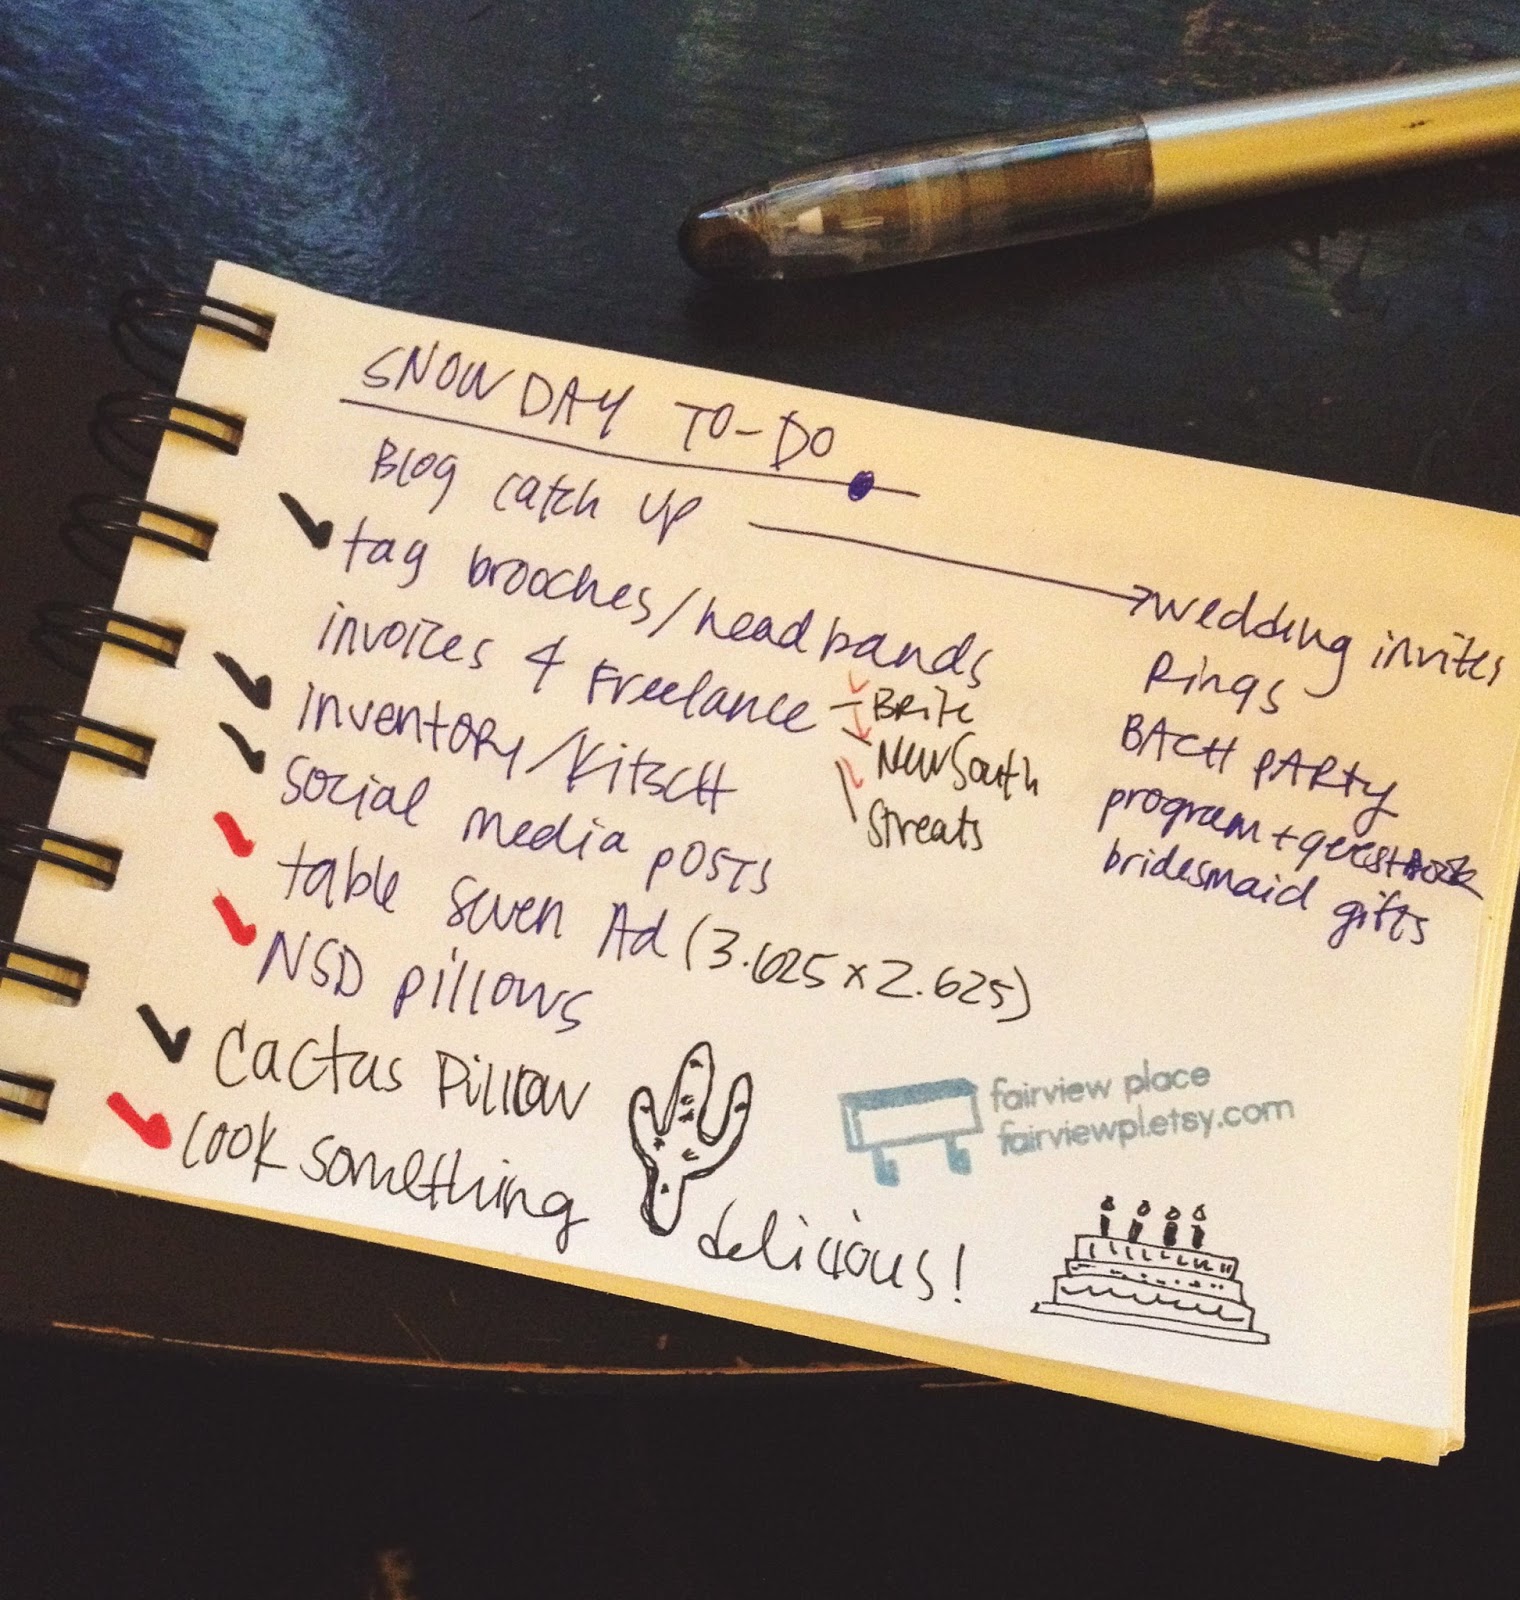 SNOW DAY TO-DO
Blog catch up
tag brooches/headbands
invoices & Freelance
Brite
New South
Streats
inventory/Kitsch
social media posts
table seven Ad (3.625 x 2.625)
NSD pillows
Cactus Pillow
cook something
delicious!
wedding invites
Rings
BACH PARTY
program + guestbook
bridesmaid gifts
fairview place
fairviewpl.etsy.com